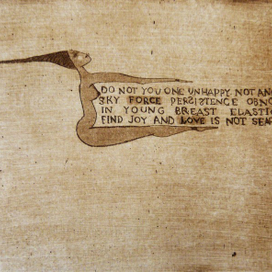 DO NOT YOU ONE UNHAPPY NOT AN
SKY FORCE PERSISTENCE OBNO
IN YOUNG BREAST ELASTI
FIND JOY AND LOVE IS NOT SEAR